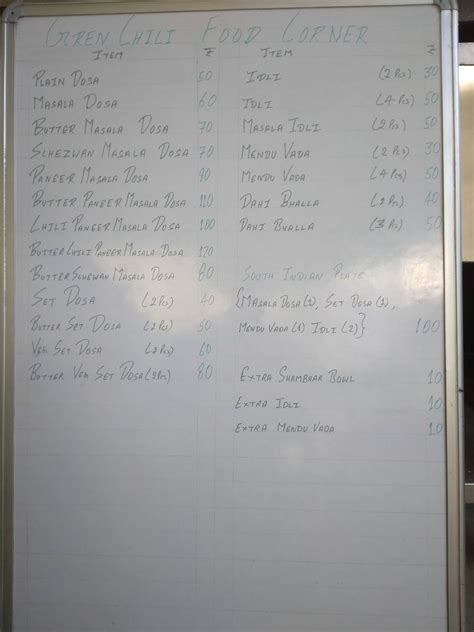 GREN CHILI FOOD CORNER
ITEM ₹
PLAIN DOSA 50
MASALA DOSA 60
BUTTER MASALA DOSA 70
SCHEZWAN MASALA DOSA 70
PANEER MASALA DOSA 90
BUTTER PANEER MASALA DOSA 110
CHILI PANEER MASALA DOSA 100
BUTTER CHILI PANEER MASALA DOSA 120
BUTTER SCHEWAN MASALA DOSA 80
SET DOSA (2 Pcs) 40
BUTTER SET DOSA (2 Pcs) 50
VEG SET DOSA (2 Pcs) 60
BUTTER VEG SET DOSA (2 Pcs) 80
ITEM ₹
IDLI (2 Pcs) 30
IDLI (4 Pcs) 50
MASALA IDLI (2 Pcs) 50
MENDU VADA (2 Pcs) 30
MENDU VADA (4 Pcs) 50
DAHI BHALLA (2 Pcs) 40
DAHI BHALLA (3 Pcs) 50
SOUTH INDIAN PLATE
{MASALA DOSA (1), SET DOSA (2),
MENDU VADA (1) IDLI (2)} 100
EXTRA SHAMBHAR BOWL 10
EXTRA IDLI 10
EXTRA MENDU VADA 10